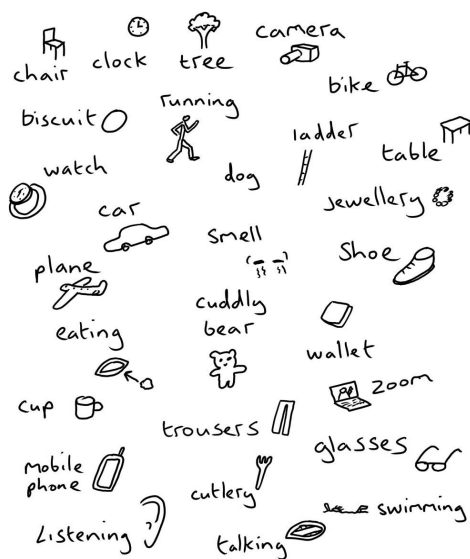 chair
clock
tree
camera
bike
biscuit
running
ladder
table
watch
dog
jewellery
car
smell
shoe
plane
cuddly
bear
eating
wallet
cup
zoom
trousers
glasses
mobile
phone
cutlery
swimming
Listening
talking